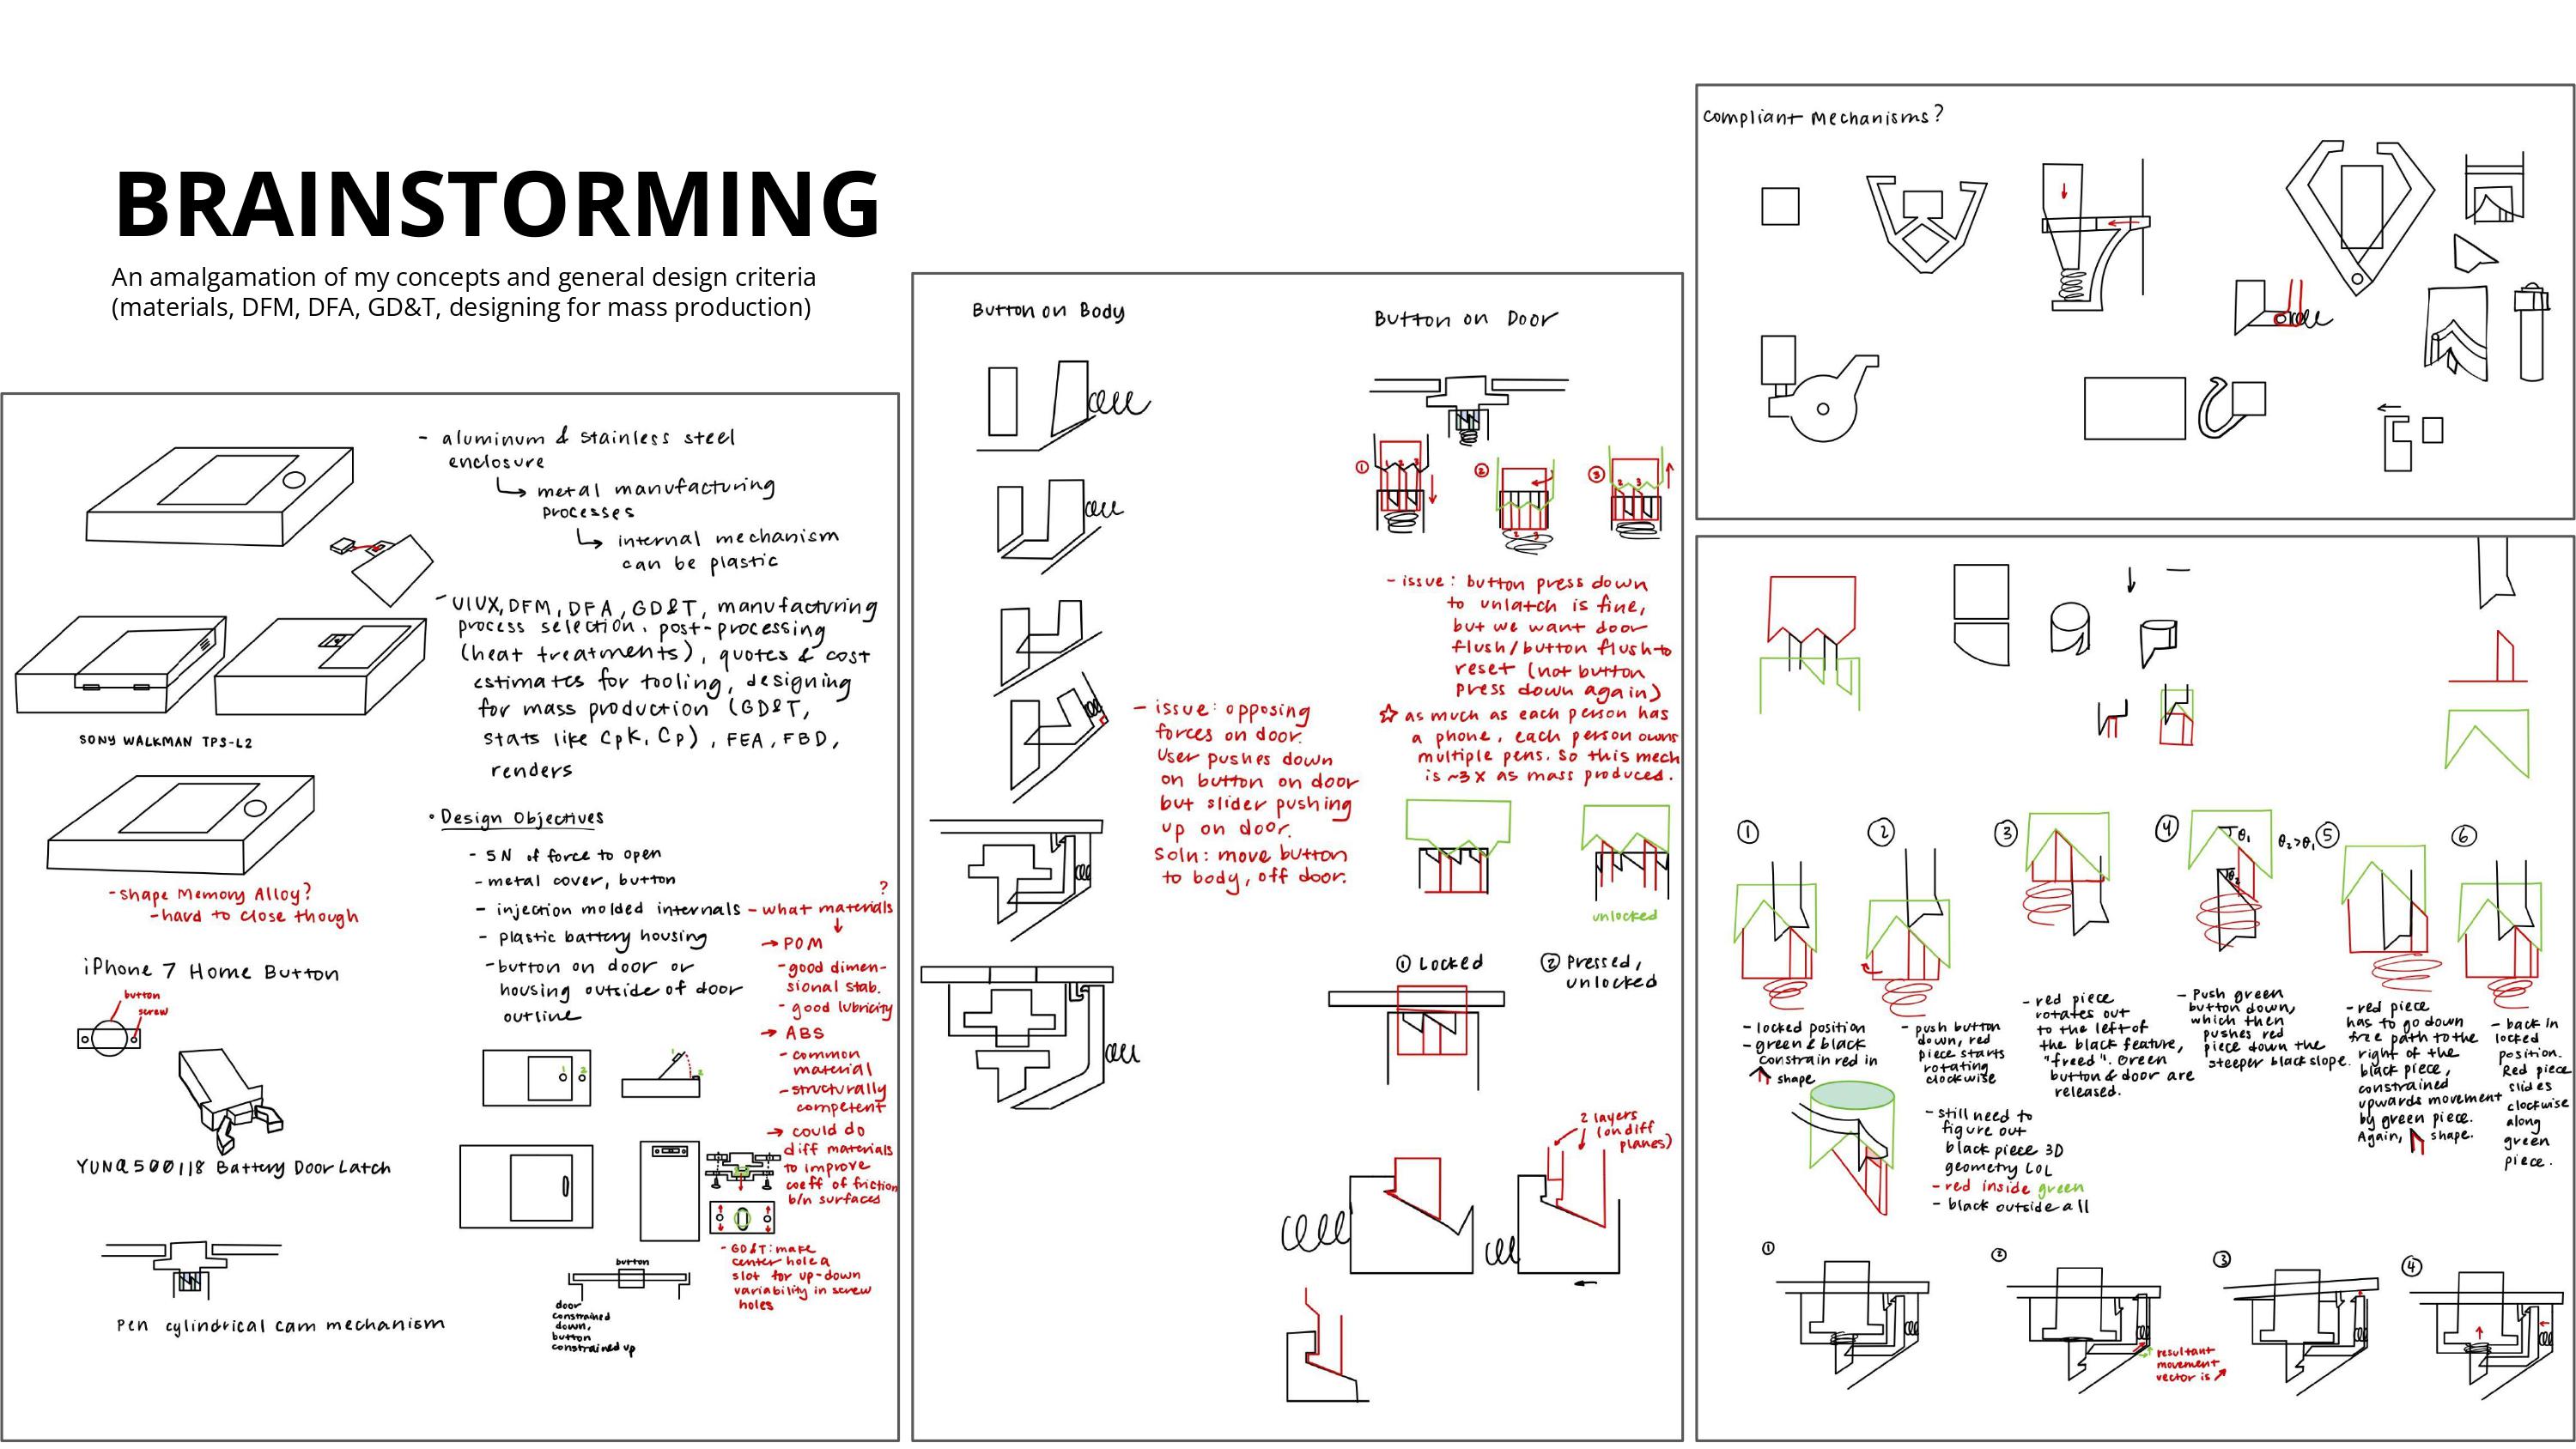 BRAINSTORMING
An amalgamation of my concepts and general design criteria
(materials, DFM, DFA, GD&T, designing for mass production)
- aluminum & stainless steel
enclosure
metal manufacturing
processes
internal mechanism
can be plastic
- UIUX, DFM, DFA, GD&T, manufacturing
process selection, post-processing
(heat treatments), quotes & cost
estimates for tooling, designing
for mass production (GD&T,
stats like CpK, Cp), FEA, FBD,
renders
SONY WALKMAN TPS-L2
- shape Memory Alloy?
- hard to close though
iPhone 7 Home Button
button
screw
YUNQ500118 Battery Door Latch
Pen cylindrical cam mechanism
• Design Objectives
- 5N of force to open
- metal cover, button
- injection molded internals
- plastic battery housing
- button on door or
housing outside of door
outline
?
- what materials
→ POM
- good dimen-
sional stab.
- good lubricity
→ ABS
- common
material
- structurally
competent
→ could do
diff materials
to improve
coeff of friction
b/n surfaces
1
2
1
2
- GD&T: make
center hole a
slot for up-down
variability in screw
holes
button
door
constrained
down,
button
constrained up
Button on Body
- issue: opposing
forces on door.
User pushes down
on button on door
but slider pushing
up on door.
Soln: move button
to body, off door.
Button on Door
①
1 2 3
②
2 3
③
2 3
- issue: button press down
to unlatch is fine,
but we want door
flush/button flush to
reset (not button
press down again)
☆ as much as each person has
a phone, each person owns
multiple pens. So this mech
is ~3x as mass produced.
unlocked
① Locked
② Pressed,
unlocked
2 layers
(on diff
planes)
Compliant Mechanisms?
①
②
③
④
θ₁
θ₂
θ₂>θ₁
⑤
⑥
- locked position
- green & black
constrain red in
shape
- push button
down, red
piece starts
rotating
clockwise
- red piece
rotates out
to the left of
the black feature,
"freed". Green
button & door are
released.
- Push green
button down,
which then
pushes red
piece down the
steeper black slope.
- red piece
has to go down
free path to the
right of the
black piece,
constrained
upwards movement
by green piece.
Again, shape.
- back in
locked
position.
Red piece
slides
clockwise
along
green
piece.
- still need to
figure out
black piece 3D
geometry LOL
- red inside green
- black outside all
①
②
③
④
resultant
movement
vector is